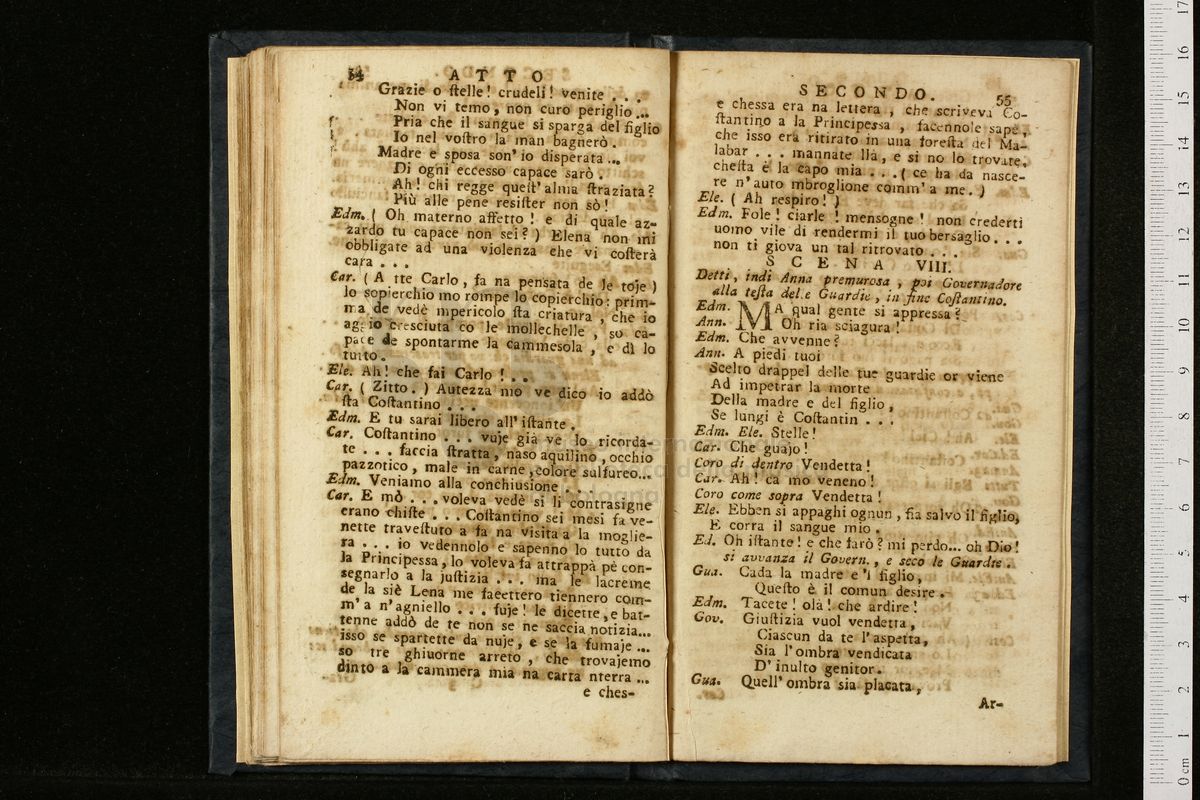 54 ATTO
Grazie o ſtelle! crudeli! venite . . .
Non vi temo, non curo periglio...
Pria che il sangue si sparga del figlio
Io nel voſtro la man bagnerò.
Madre e sposa son' io disperata ...
Di ogni eccesso capace sarò.
Ah! chi regge queſt' alma ſtraziata?
Più alle pene resiſter non sò!
Edm. ( Oh materno affetto! e di quale az-
zardo tu capace non sei? ) Elena non mi
obbligate ad una violenza che vi coſterà
cara . . .
Car. ( A tte Carlo, fa na pensata de le toje )
lo sopierchio mo rompe lo copierchio: prim-
ma de vedè mpericolo ſta criatura, che io
aggio cresciuta co le mollechelle, so ca-
pace de spontarme la cammesola, e dì lo
tutto.
Ele. Ah! che fai Carlo! . . .
Car. ( Zitto. ) Autezza mo ve dico io addò
ſta Coſtantino . . .
Edm. E tu sarai libero all' iſtante.
Car. Coſtantino . . . vuje già ve lo ricorda-
te . . . faccia ſtratta, naso aquilino, occhio
pazzotico, male in carne, colore sulfureo...
Edm. Veniamo alla conchiusione . . .
Car. E mò . . . voleva vedè si li contrasigne
erano chiſte . . . Coſtantino sei mesi fa ve-
nette traveſtuto a fa na visita a la moglie-
ra . . . io vedennolo e sapenno lo tutto da
la Principessa, lo voleva fa attrappà pè con-
segnarlo a la juſtizia . . . ma le lacreme
de la siè Lena me facettero tiennero com-
m' a n' agniello . . . fuje! le dicette, e bat-
tenne addò de te non se ne saccia notizia...
isso se spartette da nuje, e se la fumaje ...
so tre ghiuorne arreto, che trovajemo
dinto a la cammera mia na carta nterra ...
e ches-
SECONDO. 55
e chessa era na lettera, che scriveva Co-
ſtantino a la Principessa, facennole sapè,
che isso era ritirato in una foreſta del Ma-
labar . . . mannate llà, e si no lo trovate,
cheſta è la capo mia . . . ( ce ha da nasce-
re n' auto mbroglione comm' a me. )
Ele. ( Ah respiro! )
Edm. Fole! ciarle! mensogne! non crederti
uomo vile di rendermi il tuo bersaglio . . .
non ti giova un tal ritrovato . . .
SCENA VIII.
Detti, indi Anna premurosa, poi Governadore
alla teſta delle Guardie, in fine Coſtantino.
Edm. MA qual gente si appressa?
Ann. Oh ria sciagura!
Edm. Che avvenne?
Ann. A piedi tuoi
Scelto drappel delle tue guardie or viene
Ad impetrar la morte
Della madre e del figlio,
Se lungi è Coſtantin . . .
Edm. Ele. Stelle!
Car. Che guajo!
Coro di dentro Vendetta!
Car. Ah! ca mo veneno!
Coro come sopra Vendetta!
Ele. Ebben si appaghi ognun, fia salvo il figlio,
E corra il sangue mio.
Ed. Oh iſtante! e che farò? mi perdo... oh Dio!
si avvanza il Govern., e seco le Guardie.
Gua. Cada la madre e 'l figlio,
Queſto è il comun desire.
Edm. Tacete! olà! che ardire!
Gov. Giuſtizia vuol vendetta,
Ciascun da te l' aspetta,
Sia l' ombra vendicata
D' inulto genitor.
Gua. Quell' ombra sia placata,
Ar-
0 cm 1 2 3 4 5 6 7 8 9 10 11 12 13 14 15 16 17